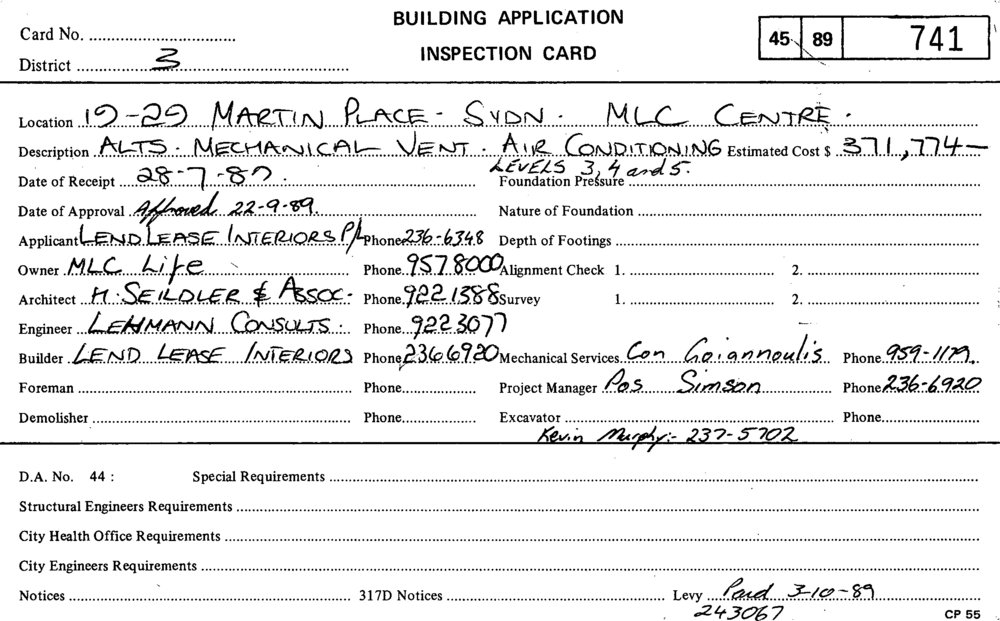 BUILDING APPLICATION
Card No.
45 89 741
INSPECTION CARD
District 3
Location 19-29 MARTIN PLACE - SYDN. MLC CENTRE.
Description ALTS. MECHANICAL VENT. AIR CONDITIONING Estimated Cost $ 371,774—
LEVELS 3, 4 and 5.
Date of Receipt 28-7-89. Foundation Pressure
Date of Approval Approved 22-9-89. Nature of Foundation
Applicant LEND LEASE INTERIORS P/L Phone 236-6348 Depth of Footings
Owner MLC Life Phone. 957 8000 Alignment Check 1. 2.
Architect H. SEILDLER & ASSOC. Phone. 922 1388 Survey 1. 2.
Engineer LEHMANN CONSULTS. Phone. 922 3077
Builder LEND LEASE INTERIORS Phone 236 6920 Mechanical Services. Con Goiannoulis Phone. 959-1179.
Foreman Phone. Project Manager Pos Simson Phone 236-6920
Demolisher Phone. Excavator Phone.
Kevin Murphy:- 237-5702
D.A. No. 44 : Special Requirements
Structural Engineers Requirements
City Health Office Requirements
City Engineers Requirements
Notices 317D Notices Levy Paid 3-10-89
243067 CP 55